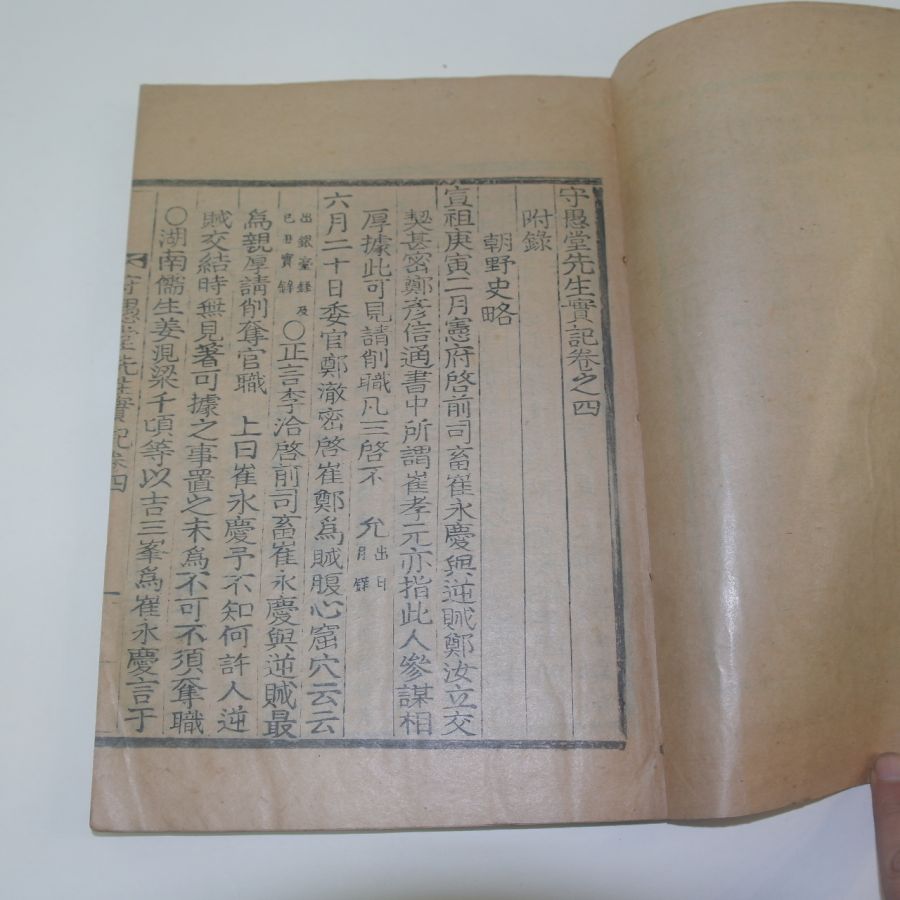 守愚堂先生實記卷之四
附錄
朝野史略
宣祖庚寅二月憲府啓前司畜崔永慶與逆賊鄭汝立交
契甚密鄭彦信通書中所謂崔孝元亦指此人參謀相
厚據此可見請削職凡三啓不 允出日月錄
六月二十日委官鄭澈密啓崔鄭爲賊腹心窟穴云云
出銀臺錄及己丑實錄〇正言李洽啓前司畜崔永慶與逆賊最
爲親厚請削奪官職 上曰崔永慶予不知何許人逆
賊交結時無見著可據之事置之未爲不可不須奪職
〇湖南儒生姜涀梁千頃等以吉三峯爲崔永慶言于
守愚堂先生實記卷四 一